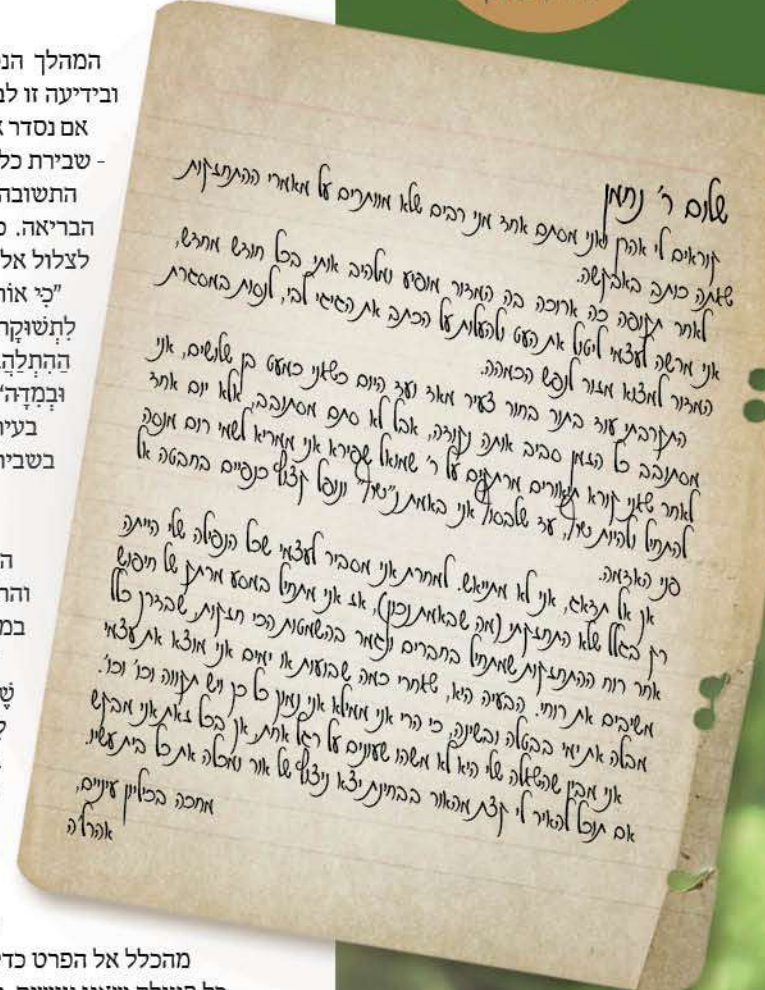 המהלך
ובידיעה זו
אם נסדר
- שבירת
התשובה
הבריאה.
לצלול
"כִּי
בעיר
מהכלל אל הפרט
שלום ר' נחמן
קוראים לי אהרן ואני מסתם אחד מני רבים שלא מוותרים על מאמרי ההתחזקות
שאתה כותב באבקשה.
לאחר תקופה כה ארוכה בה המדור מופיע ומלהיב אותי בכל חודש מחדש,
אני מרשה לעצמי ליטול את העט ולהעלות על הכתב את הגיגי לבי, לנסות במסגרת
המדור למצוא מזור לנפש הכמהה.
התקרבתי עוד בתור בחור צעיר מאד ועד היום כשאני כמעט בן שלושים, אני
מסתובב כל הזמן סביב אותה נקודה, אבל לא סתם מסתובב, אלא יום אחד
לאחר שאני קורא תיאורים מרתקים על ר' שמואל שפירא אני ממריא לשמי רום מנסה
להתחיל ולהיות נשר, עד שלבסוף אני באמת נ"נשר" ונופל קצוץ כנפיים בחבטה אל
פני האדמה.
אך אל תדאג, אני לא מתייאש. למחרת אני מסביר לעצמי שכל הנפילה שלי הייתה
רק בגלל שלא התחזקתי (מה שבאמת נכון), אז אני מתחיל במסע מרתק של חיפוש
אחר רוח ההתחזקות שמתחיל בחברים ונגמר בהשמטות הכי חזקות, שבדרך כלל
משיבים את רוחי. הבעיה היא, שאחרי כמה שבועות או ימים אני מוצא את עצמי
מבלה את ימי בבטלה ובשינה, כי הרי אני ממילא אני נמוך כל כך ויש תקווה וכו' וכו'.
אני מבין שהשאלה שלי היא לא משהו שעונים על רגל אחת, אך בכל זאת אני מבקש
אם תוכל להאיר לי קצת מהאור בבחינת יצא ניצוץ של אור ומכלה את כל בית עשיו.
מחכה בכיליון עיניים,
אהרל'ה